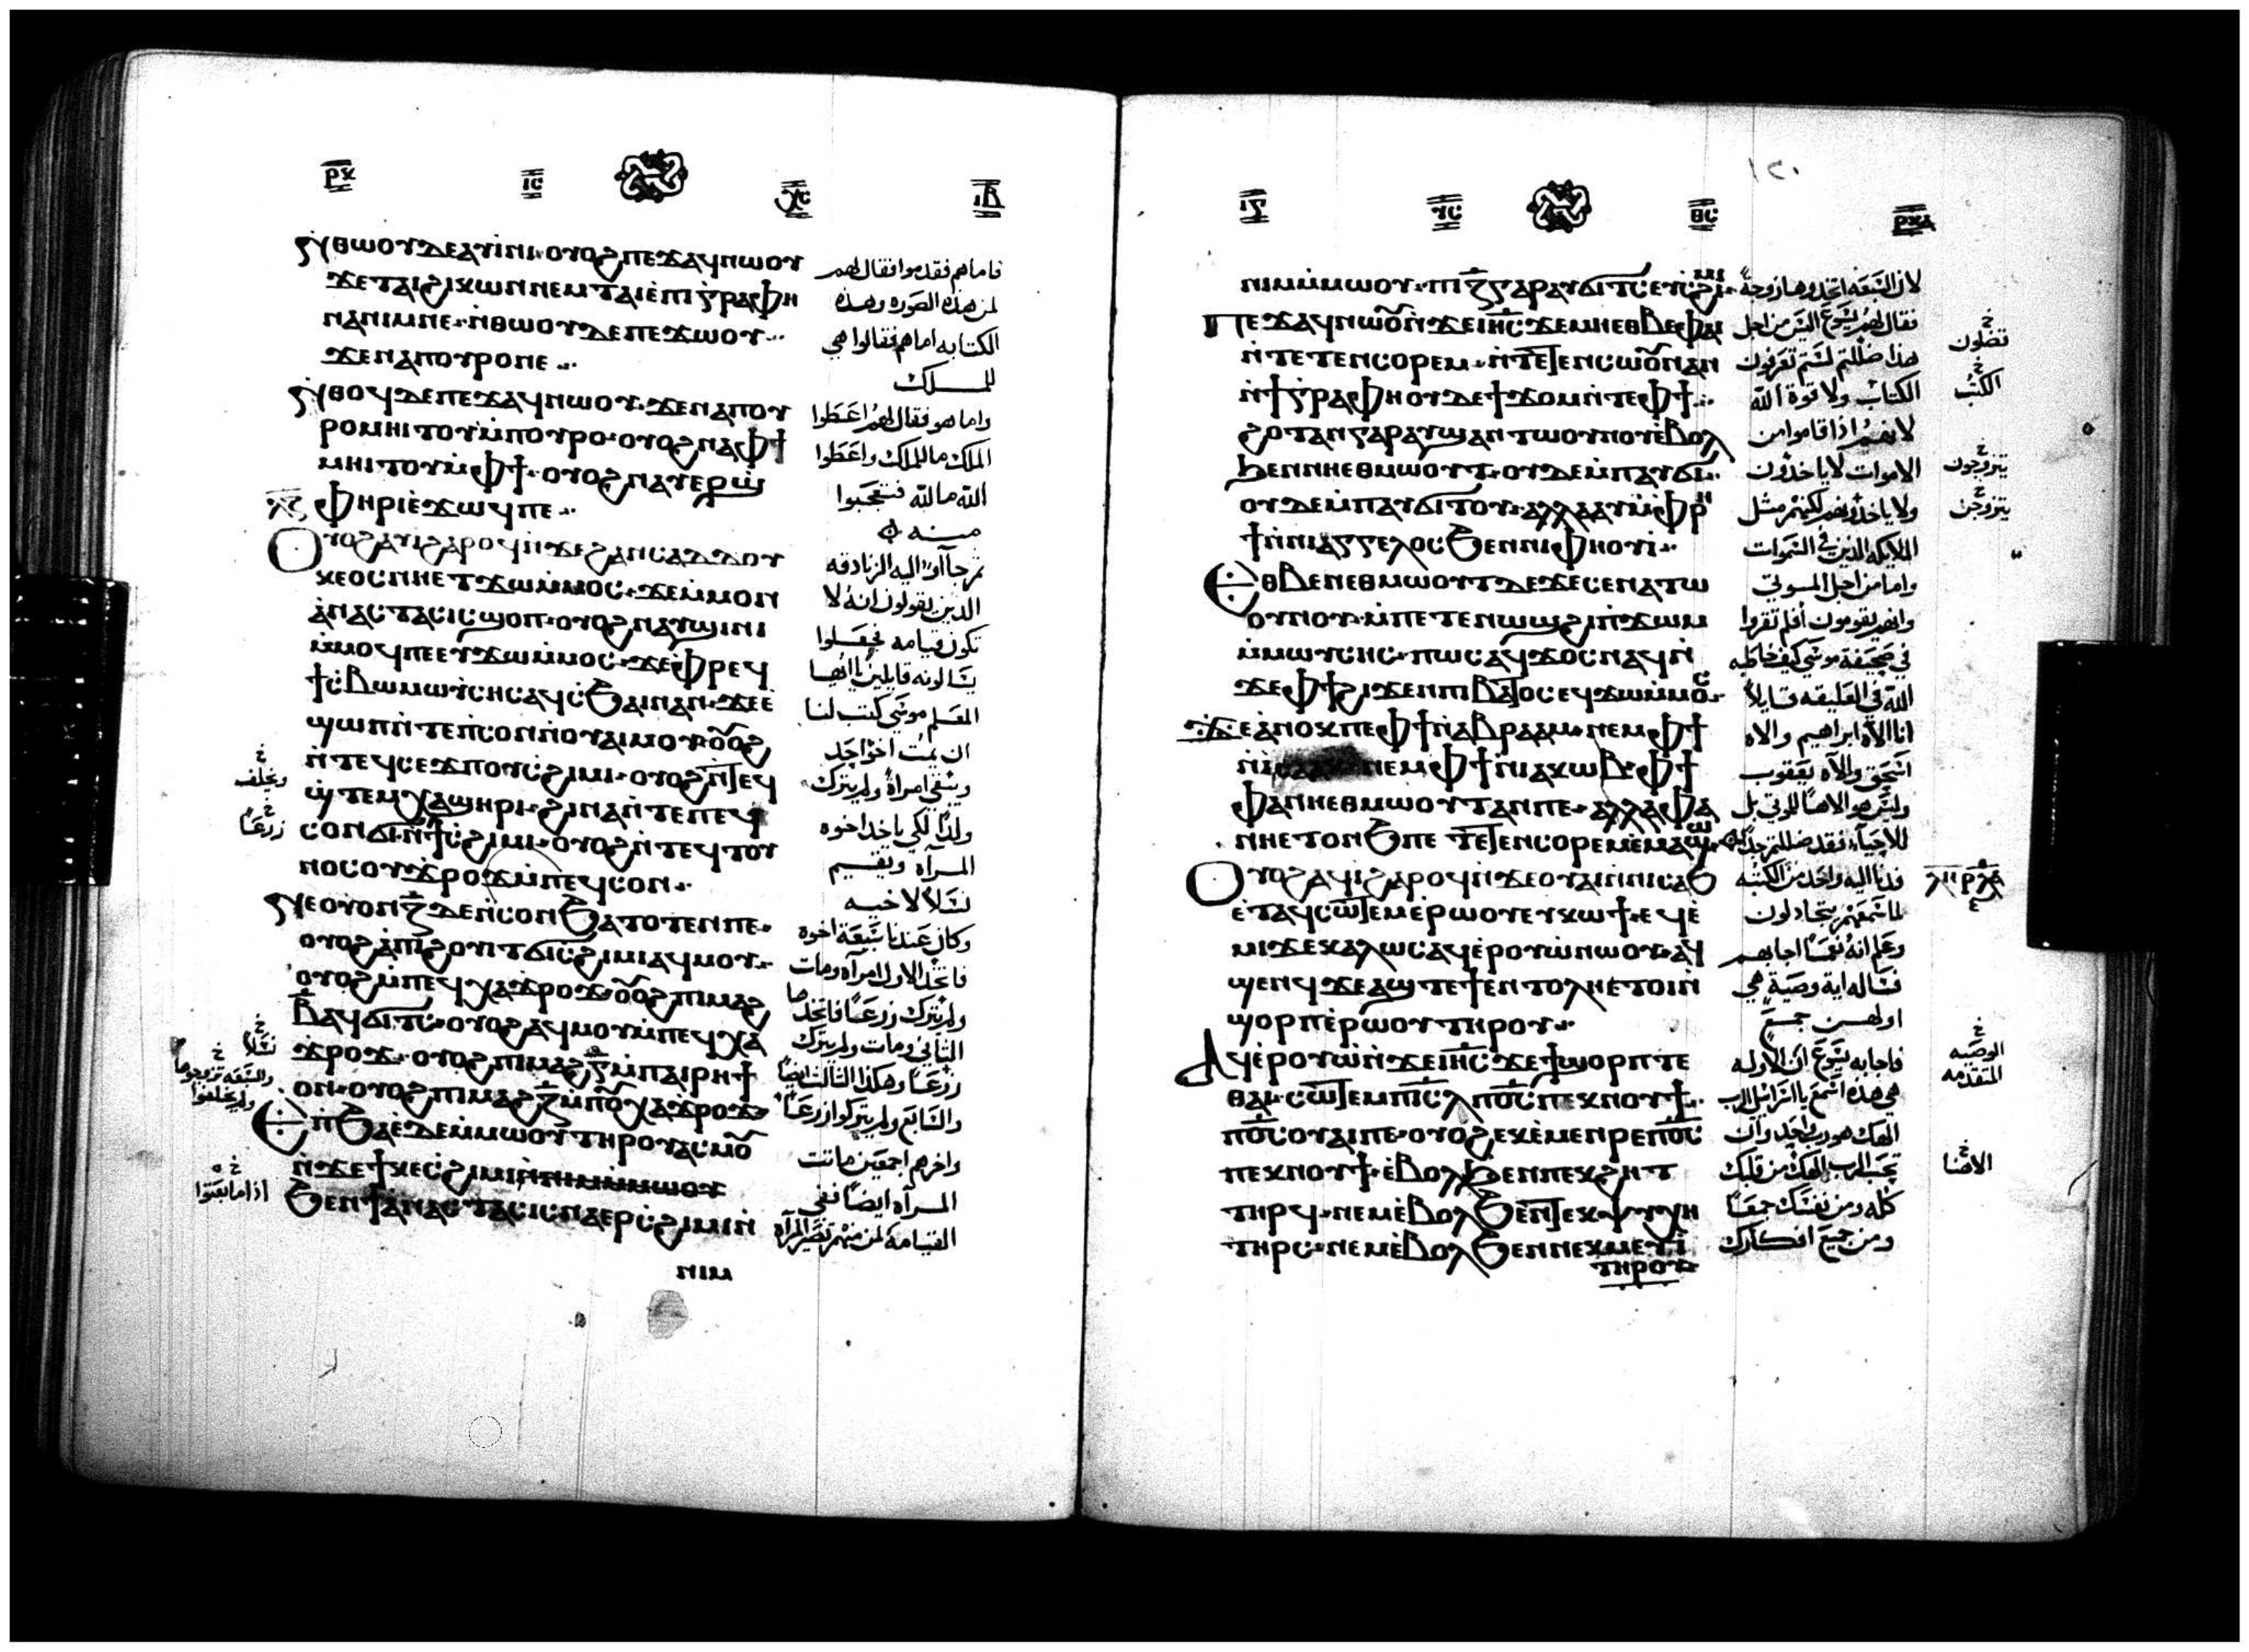 ⲣⲕ ⲓⲥ ⲭⲥ ⲓⲃ
ⲛ̀ⲑⲱⲟⲩ ⲇⲉ ⲁⲩⲓ̀ⲛⲓ· ⲟⲩⲟϩ ⲡⲉϫⲁϥ ⲛⲱⲟⲩ
ϫⲉ ⲧⲁⲓϩⲓⲕⲱⲛ ⲛⲉⲙ ⲧⲁⲓⲉ̀ⲡⲓⲅⲣⲁⲫⲏ
ⲛⲁⲛⲓⲙ ⲛⲉ· ⲛ̀ⲑⲱⲟⲩ ⲇⲉ ⲡⲉϫⲱⲟⲩ
ϫⲉ ⲛⲁⲡⲟⲩⲣⲟ ⲛⲉ
ⲛ̀ⲑⲟϥ ⲇⲉ ⲡⲉϫⲁϥ ⲛⲱⲟⲩ· ϫⲉ ⲛⲁⲡⲟⲩ
ⲣⲟ ⲙⲏⲓⲧⲟⲩ ⲙ̀ⲡⲟⲩⲣⲟ· ⲟⲩⲟϩ ⲛⲁⲫϯ
ⲙⲏⲓⲧⲟⲩ ⲙ̀ⲫϯ· ⲟⲩⲟϩ ⲛⲁⲩⲉⲣϣ̀
ⲫⲏⲣⲓ ⲉ̀ϫⲱϥ ⲡⲉ
ⲟⲩⲟϩ ⲁⲩⲓ̀ ϩⲁⲣⲟϥ ⲛ̀ϫⲉ ϩⲁⲛⲥⲁⲇⲇⲟⲩ
ⲕⲉⲟⲥ ⲛⲏⲉⲧϫⲱⲙ̀ⲙⲟⲥ· ϫⲉ ⲙ̀ⲙⲟⲛ
ⲁ̀ⲛⲁⲥⲧⲁⲥⲓⲥ ϣⲟⲡ· ⲟⲩⲟϩ ⲛⲁⲩϣⲓⲛⲓ
ⲙ̀ⲙⲟϥ ⲡⲉ ⲉⲩϫⲱⲙ̀ⲙⲟⲥ· ϫⲉ ⲫⲣⲉϥ
ϯⲥ̀ⲃⲱ ⲙⲱⲩⲥⲏⲥ ⲁϥⲥ̀ϧⲁⲓ ⲛⲁⲛ· ϫⲉ ⲉ̀
ϣⲱⲡ ⲛ̀ⲧⲉⲡ̀ⲥⲟⲛ ⲛ̀ⲟⲩⲁⲓ ⲙⲟⲩ· ⲟⲩⲟϩ
ⲛ̀ⲧⲉϥⲥⲉϫⲡ ⲟⲩⲥ̀ϩⲓⲙⲓ· ⲟⲩⲟϩ ⲛ̀ⲧⲉϥ
ϣ̀ⲧⲉⲙⲭⲁϣⲏⲣⲓ· ϩⲓⲛⲁ ⲛ̀ⲧⲉⲡⲉϥ
ⲥⲟⲛ ϭⲓ ⲛ̀ϯⲥ̀ϩⲓⲙⲓ· ⲟⲩⲟϩ ⲛ̀ⲧⲉϥⲧⲟⲩ
ⲛⲟⲥ ⲟⲩϫ̀ⲣⲟϫ ⲙ̀ⲡⲉϥⲥⲟⲛ
ⲛⲉ ⲟⲩⲟⲛ ⲍ̄ ⲇⲉ ⲛ̀ⲥⲟⲛ ϧⲁⲧⲟⲧⲉⲛ ⲡⲉ·
ⲟⲩⲟϩ ⲁ̀ⲡⲓϩⲟⲩⲓⲧ ϭⲓⲥ̀ϩⲓⲙⲓ ⲁϥⲙⲟⲩ
ⲟⲩⲟϩ ⲙ̀ⲡⲉϥⲭⲁϫ̀ⲣⲟϫ· ⲟⲩⲟϩ ⲡⲓⲙⲁϩ
ⲃ̄ ⲁϥϭⲓⲧⲥ· ⲟⲩⲟϩ ⲁϥⲙⲟⲩ ⲙ̀ⲡⲉϥⲭⲁ
ϫ̀ⲣⲟϫ· ⲟⲩⲟϩ ⲡⲓⲙⲁϩⲅ̄ ⲙ̀ⲡⲁⲓⲣⲏϯ
ⲟⲛ· ⲟⲩⲟϩ ⲡⲓⲙⲁϩⲍ̄ ⲙ̀ⲡⲟⲩⲭⲁϫ̀ⲣⲟϫ
ⲉⲛ̀ϧⲁⲉ̀ ⲇⲉ ⲙ̀ⲙⲱⲟⲩ ⲧⲏⲣⲟⲩ ⲁⲥⲙⲟⲩ
ⲛ̀ϫⲉ ϯⲕⲉⲥ̀ϩⲓⲙⲓ
ϧⲉⲛ ϯⲁ̀ⲛⲁⲥⲧⲁⲥⲓⲥ ⲛⲁⲉⲣⲥ̀ϩⲓⲙⲓ ⲛ̀
ⲛⲓⲙ
فاما هم فقدموا فقال لهم
لمن هذه الصوره وهذه
الكتابه اما هم فقالوا هي
للملك
واما هو فقال لهم اعطوا
الملك ما للملك واعطوا
الله ما لله فتعجبوا
منه
ثم جآآوا اليه الزنادقه
الذين يقولون انه لا
تكون قيامه فجعلوا
يسالونه قايلين يا ايها
المعلم موسى كتب لنا
ان يمت اخو احد
ويبقى امراة ولم يترك
ولدًا لكي ياخد اخوه
المرآه ويقيم
نسلًا لاخيه
وكان عندنا سبعة اخوه
فاتخد الاول امرآه ومات
ولم يترك زرعًا فاتخدها
الثاني ومات ولم يترك
زرعًا وهكذا الثالث ايضًا
والسابع ولم يتركوا زرعًا
واخرهم اجمعين ماتت
المرآه ايضًا ففي
القيامه لمن منهم تصير المرآه
ويخلف
زرعًا
نسلًا
والسبعه تزوجوها
ولم يخلفوا
اذا ما بعثوا
١٢٠
ⲓⲥ ⲩⲥ ⲑⲥ ⲣⲕⲁ
ⲛⲓⲙ ⲙ̀ⲙⲱⲟⲩ· ⲡⲓⲍ̄ ⲅⲁⲣ ⲁⲩϭⲓⲧⲥ ⲉⲩⲥ̀ϩⲓⲙⲓ
ⲡⲉϫⲁϥ ⲛⲱⲟⲩ ⲛ̀ϫⲉ ⲓⲏⲥ ϫⲉ ⲙⲏ ⲉⲑⲃⲉⲫⲁⲓ
ⲛ̀ⲧⲉⲧⲉⲛⲥⲟⲣⲉⲙ· ⲛ̀ⲧⲉⲧⲉⲛⲥⲱⲟⲩⲛ ⲁⲛ
ⲛ̀ϯⲅ̀ⲣⲁⲫⲏ ⲟⲩⲇⲉ ϯϫⲟⲙ ⲛ̀ⲧⲉ ⲫϯ
ϩⲟⲧⲁⲛ ⲅⲁⲣ ⲁⲩϣⲁⲛⲧⲱⲟⲩⲛⲟⲩ ⲉ̀ⲃⲟⲗ
ϧⲉⲛ ⲛⲏⲉⲑⲙⲱⲟⲩⲧ· ⲟⲩⲇⲉ ⲙ̀ⲡⲁⲩϭⲓ
ⲟⲩⲇⲉ ⲙ̀ⲡⲁⲩϭⲓⲧⲟⲩ· ⲁⲗⲗⲁ ⲁⲩⲙ̀ⲫⲣⲏ
ϯ ⲛ̀ⲛⲓⲁⲅⲅⲉⲗⲟⲥ ϧⲉⲛ ⲛⲓⲫⲏⲟⲩⲓ
ⲉⲑⲃⲉ ⲛⲉⲑⲙⲱⲟⲩⲧ ⲇⲉ ϫⲉ ⲥⲉⲛⲁⲧⲱ
ⲟⲩⲛⲟⲩ· ⲙ̀ⲡⲉⲧⲉⲛⲱϣ ϩⲓ ⲡ̀ϫⲱⲙ
ⲙ̀ⲙⲱⲩⲥⲏⲥ· ⲡⲱⲥ ⲁϥϫⲟⲥ ⲛⲁϥ ⲛ̀
ϫⲉ ⲫϯ ϩⲓϫⲉⲛ ⲡⲓⲃⲁⲧⲟⲥ ⲉϥϫⲱⲙ̀ⲙⲟⲥ
ϫⲉ ⲁ̀ⲛⲟⲕ ⲡⲉ ⲫϯ ⲛ̀ⲁⲃⲣⲁⲁⲙ· ⲛⲉⲙ ⲫϯ
ⲛⲉⲙ ⲫϯ ⲛ̀ⲓⲁⲕⲱⲃ· ⲫϯ
ⲫⲁ ⲛⲏⲉⲑⲙⲱⲟⲩⲧ ⲁⲛ ⲡⲉ· ⲁⲗⲗⲁ ⲫⲁ
ⲛⲏⲉⲧⲟⲛϧ ⲡⲉ ⲧⲉⲧⲉⲛⲥⲟⲣⲉⲙ ⲉ̀ⲙⲁϣⲱ
ⲟⲩⲟϩ ⲁϥⲓ̀ ϩⲁⲣⲟϥ ⲛ̀ϫⲉ ⲟⲩⲁⲓ ⲛ̀ⲛⲓⲥⲁϧ
ⲉ̀ⲧⲁϥⲥⲱⲧⲉⲙ ⲉ̀ⲣⲱⲟⲩ ⲉⲩⲕⲱϯ· ⲉϥⲉ̀
ⲙⲓ ϫⲉ ⲕⲁⲗⲱⲥ ⲁϥⲉ̀ⲣⲟⲩⲱ̀ ⲛⲱⲟⲩ· ⲁϥ
ϣⲉⲛϥ ϫⲉ ⲁϣ ⲧⲉ ϯⲉⲛⲧⲟⲗⲏ ⲉⲧⲟⲓ ⲛ̀
ϣⲟⲣⲡ ⲉ̀ⲣⲱⲟⲩ ⲧⲏⲣⲟⲩ
ⲁϥⲉ̀ⲣⲟⲩⲱ̀ ⲛ̀ϫⲉ ⲓⲏⲥ ϫⲉ ϯϣⲟⲣⲡ ⲧⲉ
ⲑⲁⲓ· ⲥⲱⲧⲉⲙ ⲡⲓⲥⲗ ⲡⲟⲥ ⲡⲉⲕⲛⲟⲩϯ
ⲡⲟⲥ ⲟⲩⲁⲓ ⲡⲉ· ⲟⲩⲟϩ ⲉⲕⲉ̀ⲙⲉⲛⲣⲉ ⲡⲟⲥ
ⲡⲉⲕⲛⲟⲩϯ ⲉ̀ⲃⲟⲗ ϧⲉⲛ ⲡⲉⲕϩⲏⲧ
ⲧⲏⲣϥ· ⲛⲉⲙ ⲉ̀ⲃⲟⲗ ϧⲉⲛ ⲧⲉⲕⲯⲩⲭⲏ
ⲧⲏⲣⲥ· ⲛⲉⲙ ⲉ̀ⲃⲟⲗ ϧⲉⲛ ⲛⲉⲕⲙⲉⲩⲓ̀
ⲧⲏⲣⲟⲩ
لان السبعه اتخدوها زوجةً
فقال لهم يسوع اليس من اجل
هذا ضللتم لستم تعرفون
الكتاب ولا قوة الله
لانهم اذا قاموا من
الاموات لا ياخدون
ولا ياخدونهم لكنهم مثل
الملايكه الذين في السموات
واما من اجل الموتي
وانهم يقومون أفلم تقروا
في صحيفة موسى كيف خاطبه
الله في العليقه قايلًا
انا الآه ابراهيم والاه
اسحق والآه يعقوب
وليس هو الاهًا للموتي بل
للاحيآء فقد ضللتم جدًا
فدنا اليه واحد من الكتبه
لما سمعهم يتجادلون
وعلم انه نعمًا اجابهم
فساله اية وصية هي
اولهن جمع
فاجابه يسوع ان الاوله
هي هذه اسمع يا اسراييل الرب
الهك هو رب واحد وان
تحب الرب الهك من قلبك
كله ومن نفسك جمعًا
ومن جميع افكارك
تضلون
الكتب
يتزوجون
يتزوجن
الوصيه
المتقدمه
الاهنا